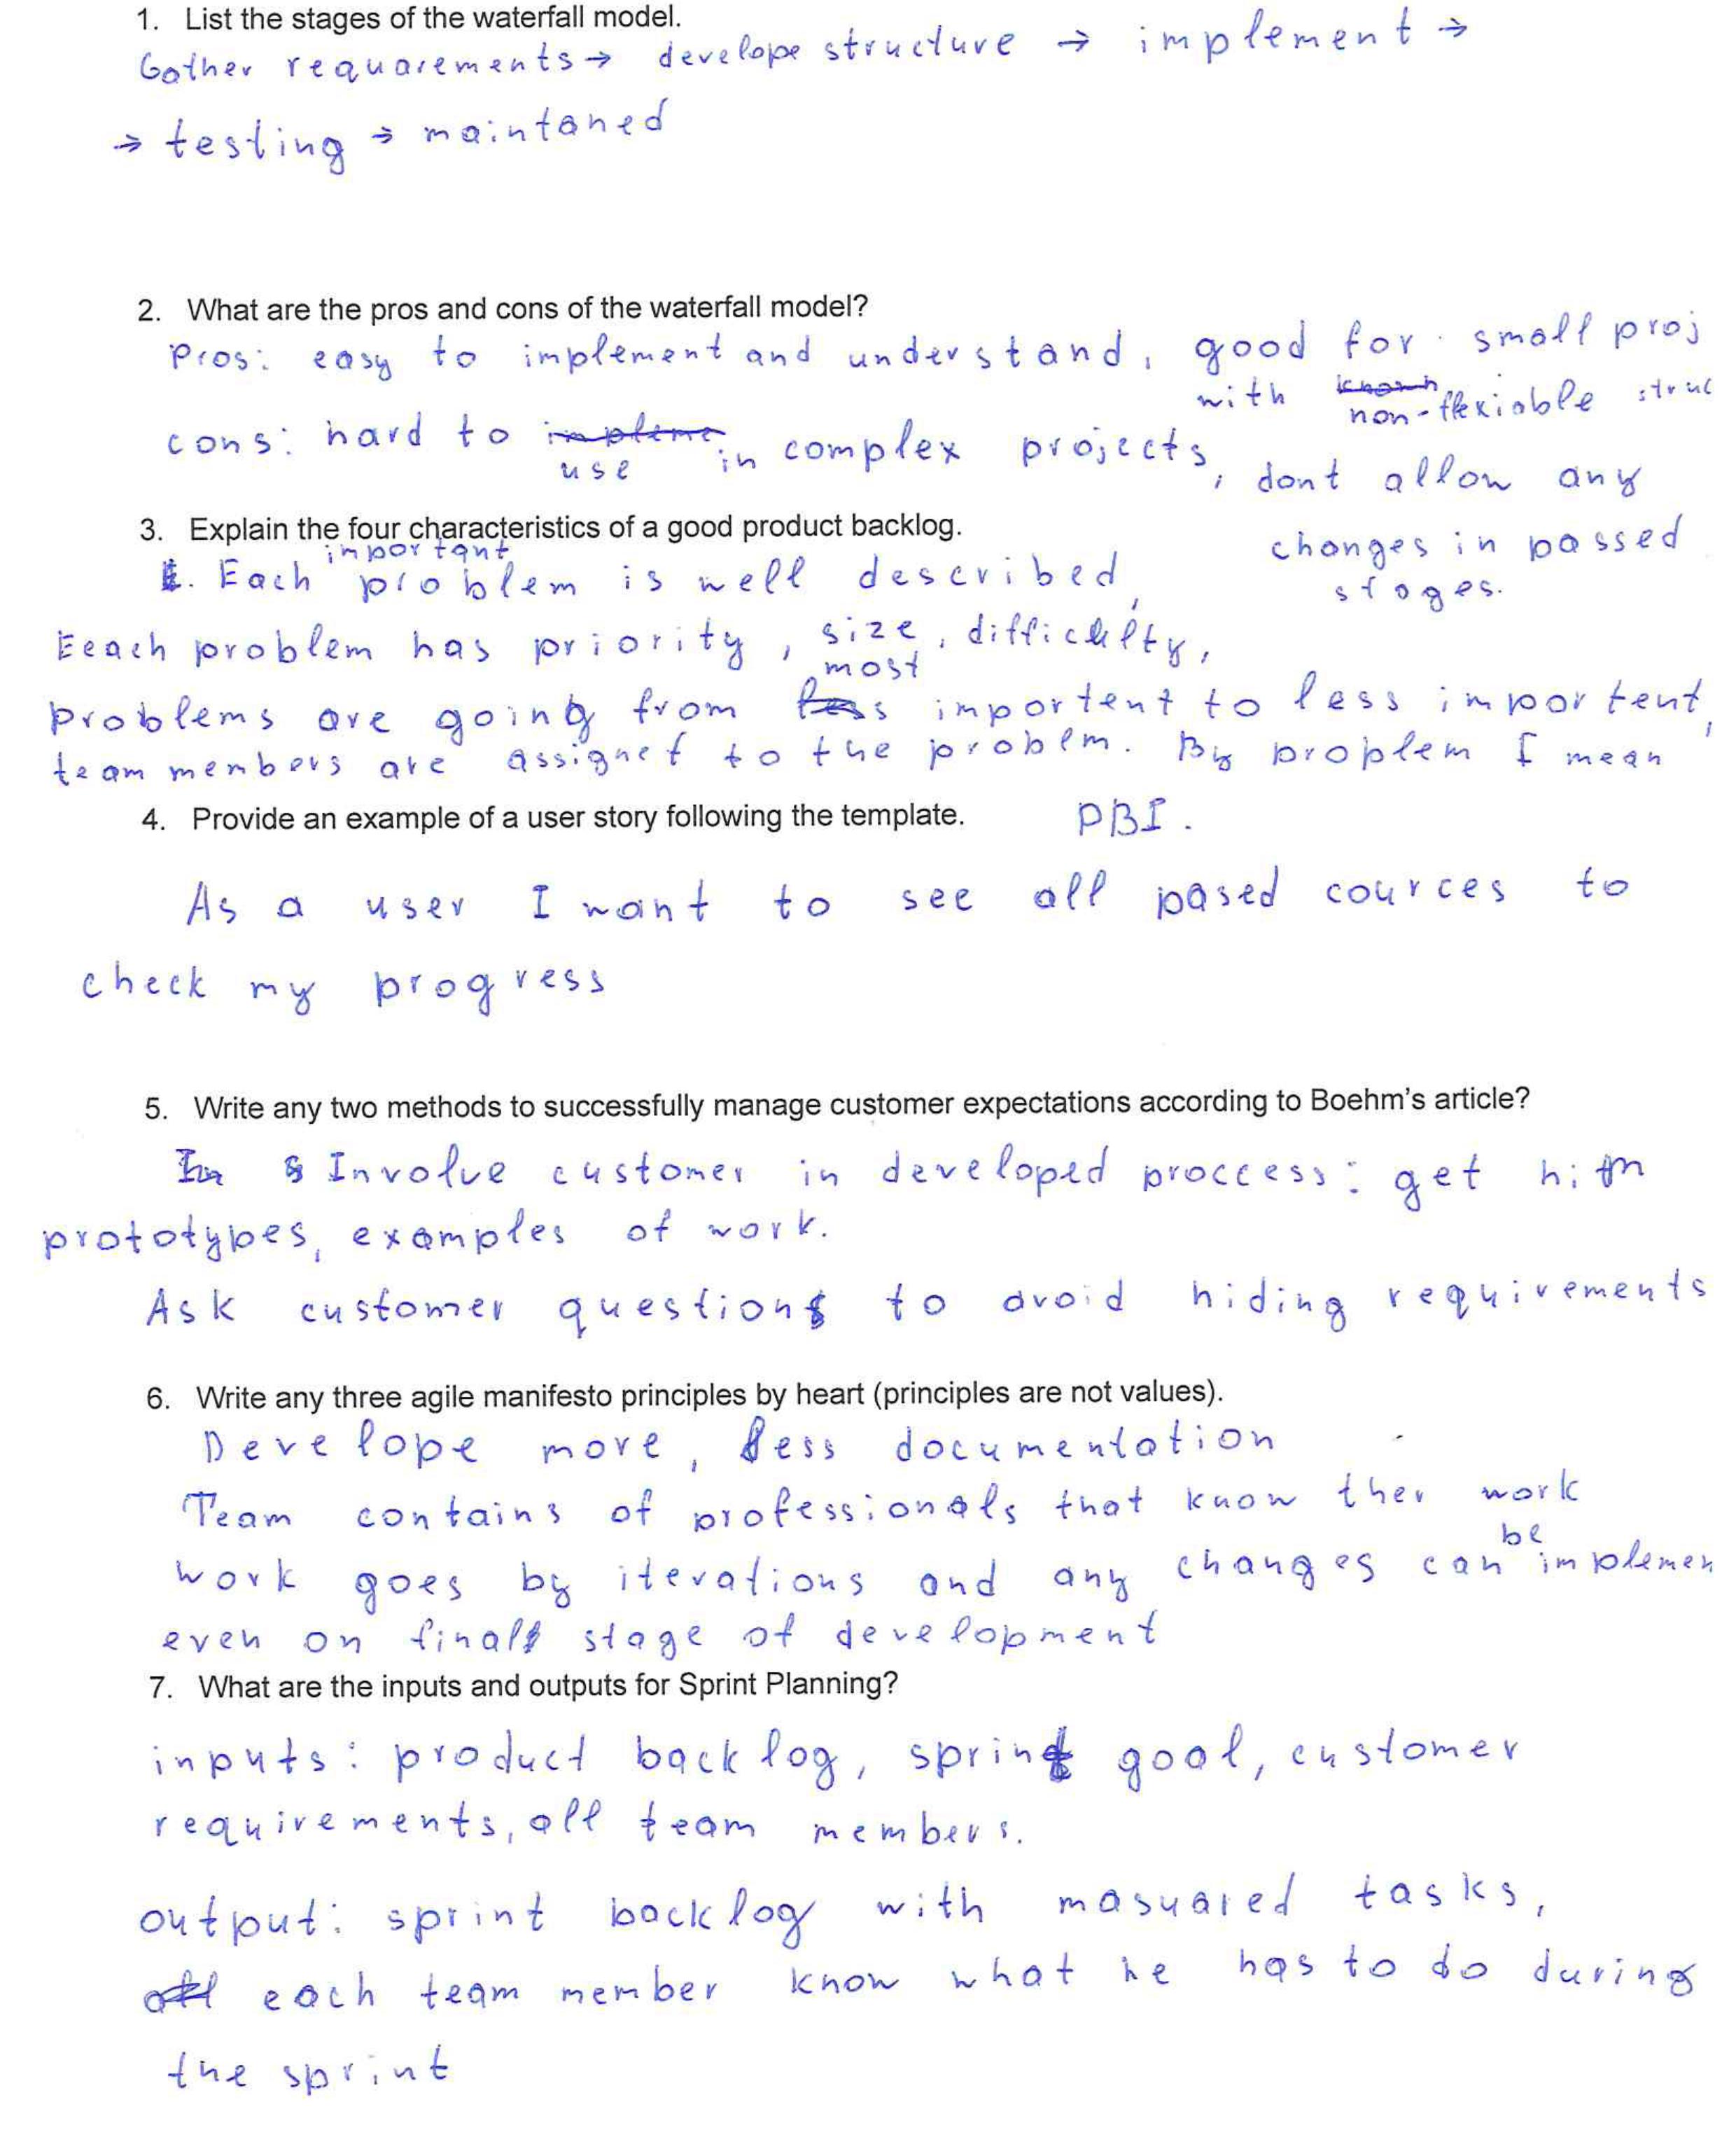 1. List the stages of the waterfall model.
Gather requarements → develope structure → implement →
→ testing → maintaned
2. What are the pros and cons of the waterfall model?
Pros: easy to implement and understand, good for small proj
with known non-flexiable struc
cons: hard to impleme use in complex projects, dont allow any
changes in passed
stoges.
3. Explain the four characteristics of a good product backlog.
1. Each important problem is well described,
Eeach problem has priority, size, difficulty,
problems are going from less most important to less importent,
team members are assignet to the problm. By problem I mean
PBI.
4. Provide an example of a user story following the template.
As a user I want to see all pased cources to
check my progress
5. Write any two methods to successfully manage customer expectations according to Boehm's article?
In Involve customer in developed proccess: get him
prototypes, examples of work.
Ask customer questions to avoid hiding requirements
6. Write any three agile manifesto principles by heart (principles are not values).
Develope more, less documentation
Team contains of professionals that know ther work
work goes by iterations and any changes can be implemen
even on final stage of development
7. What are the inputs and outputs for Sprint Planning?
inputs: product backlog, sprint goal, customer
requirements, all team members.
output: sprint backlog with masuared tasks,
all each team member know what he has to do during
the sprint